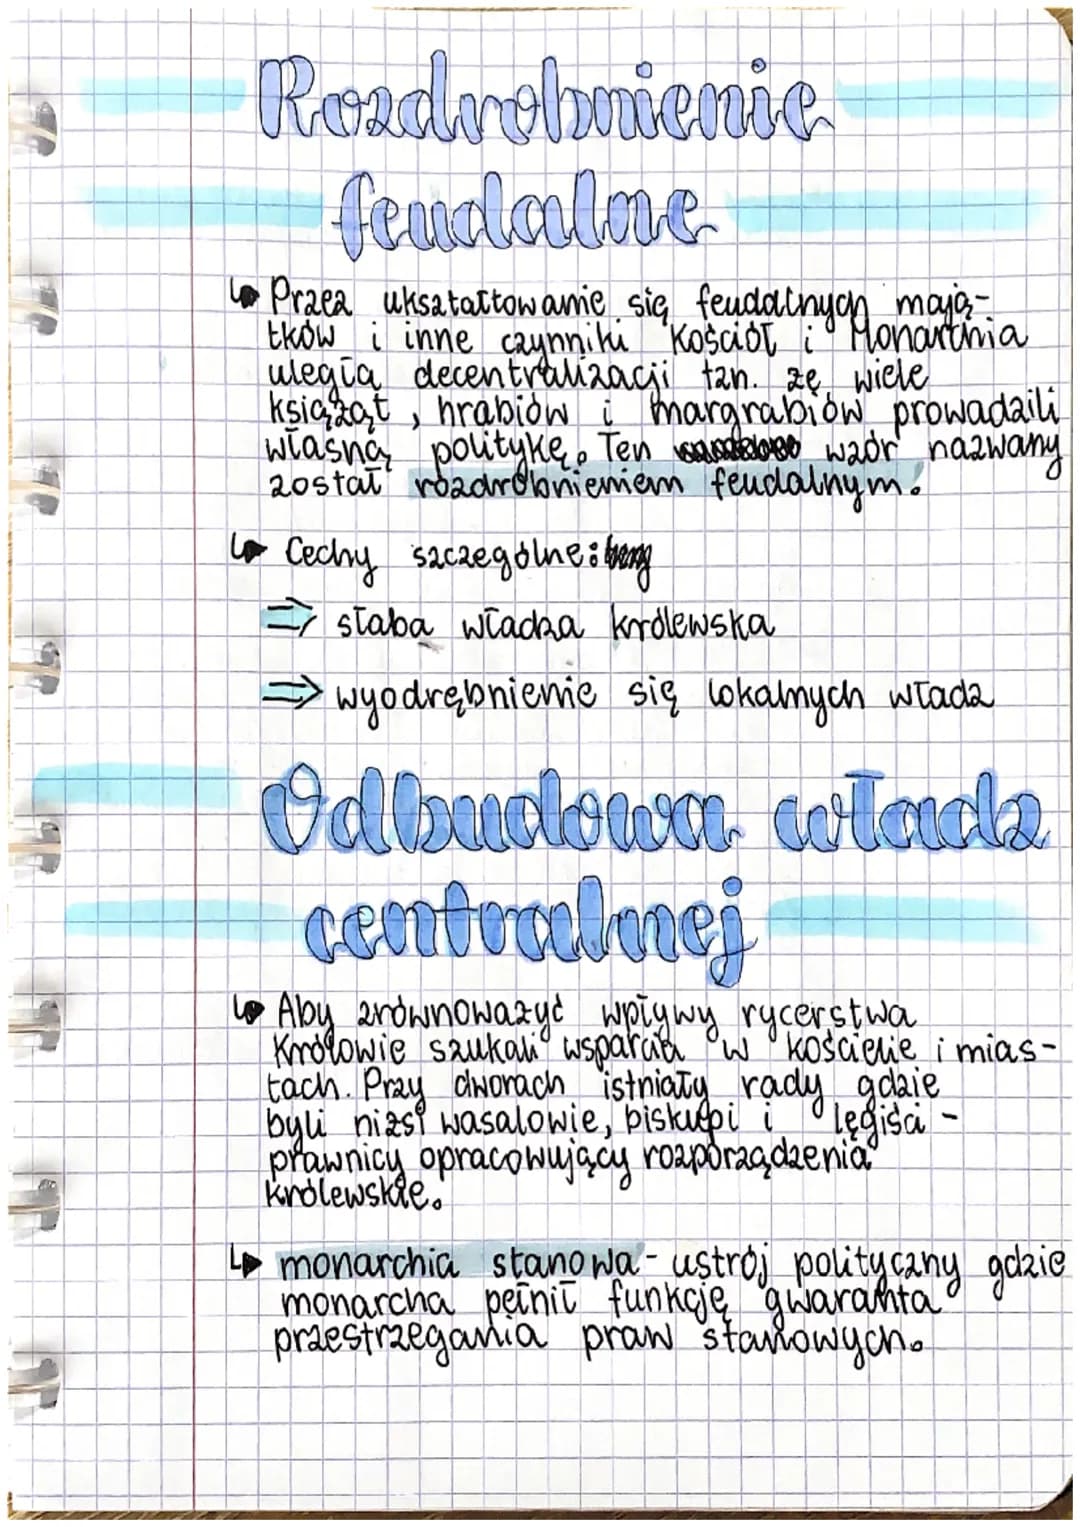 Rozdrobnienie
feudalne
↳ Przez ukształtowanie się feudalnych mają-
tków i inne czynniki Kościół i Monarchia
uległa decentralizacji tzn. zę wiele
książąt, hrabiów i margrabiów prowadzili
własną politykę. Ten wzór nazwany
został rozdrobnieniem feudalnym.
↳ Cechy szczególne:
⇒ słaba władza królewska
⇒ wyodrębnienie się lokalnych władz
Odbudowa władz
centralnej
↳ Aby zrównoważyć wpływy rycerstwa
Królowie szukali wsparcia w kościele i mias-
tach. Przy dworach istniały rady gdzie
byli niżsi wasalowie, biskupi i lęgiści -
prawnicy opracowujący rozporządzenia
królewskie.
↳ monarchia stanowa - ustrój polityczny gdzie
monarcha pełnił funkcję gwaranta
przestrzegania praw stanowych.